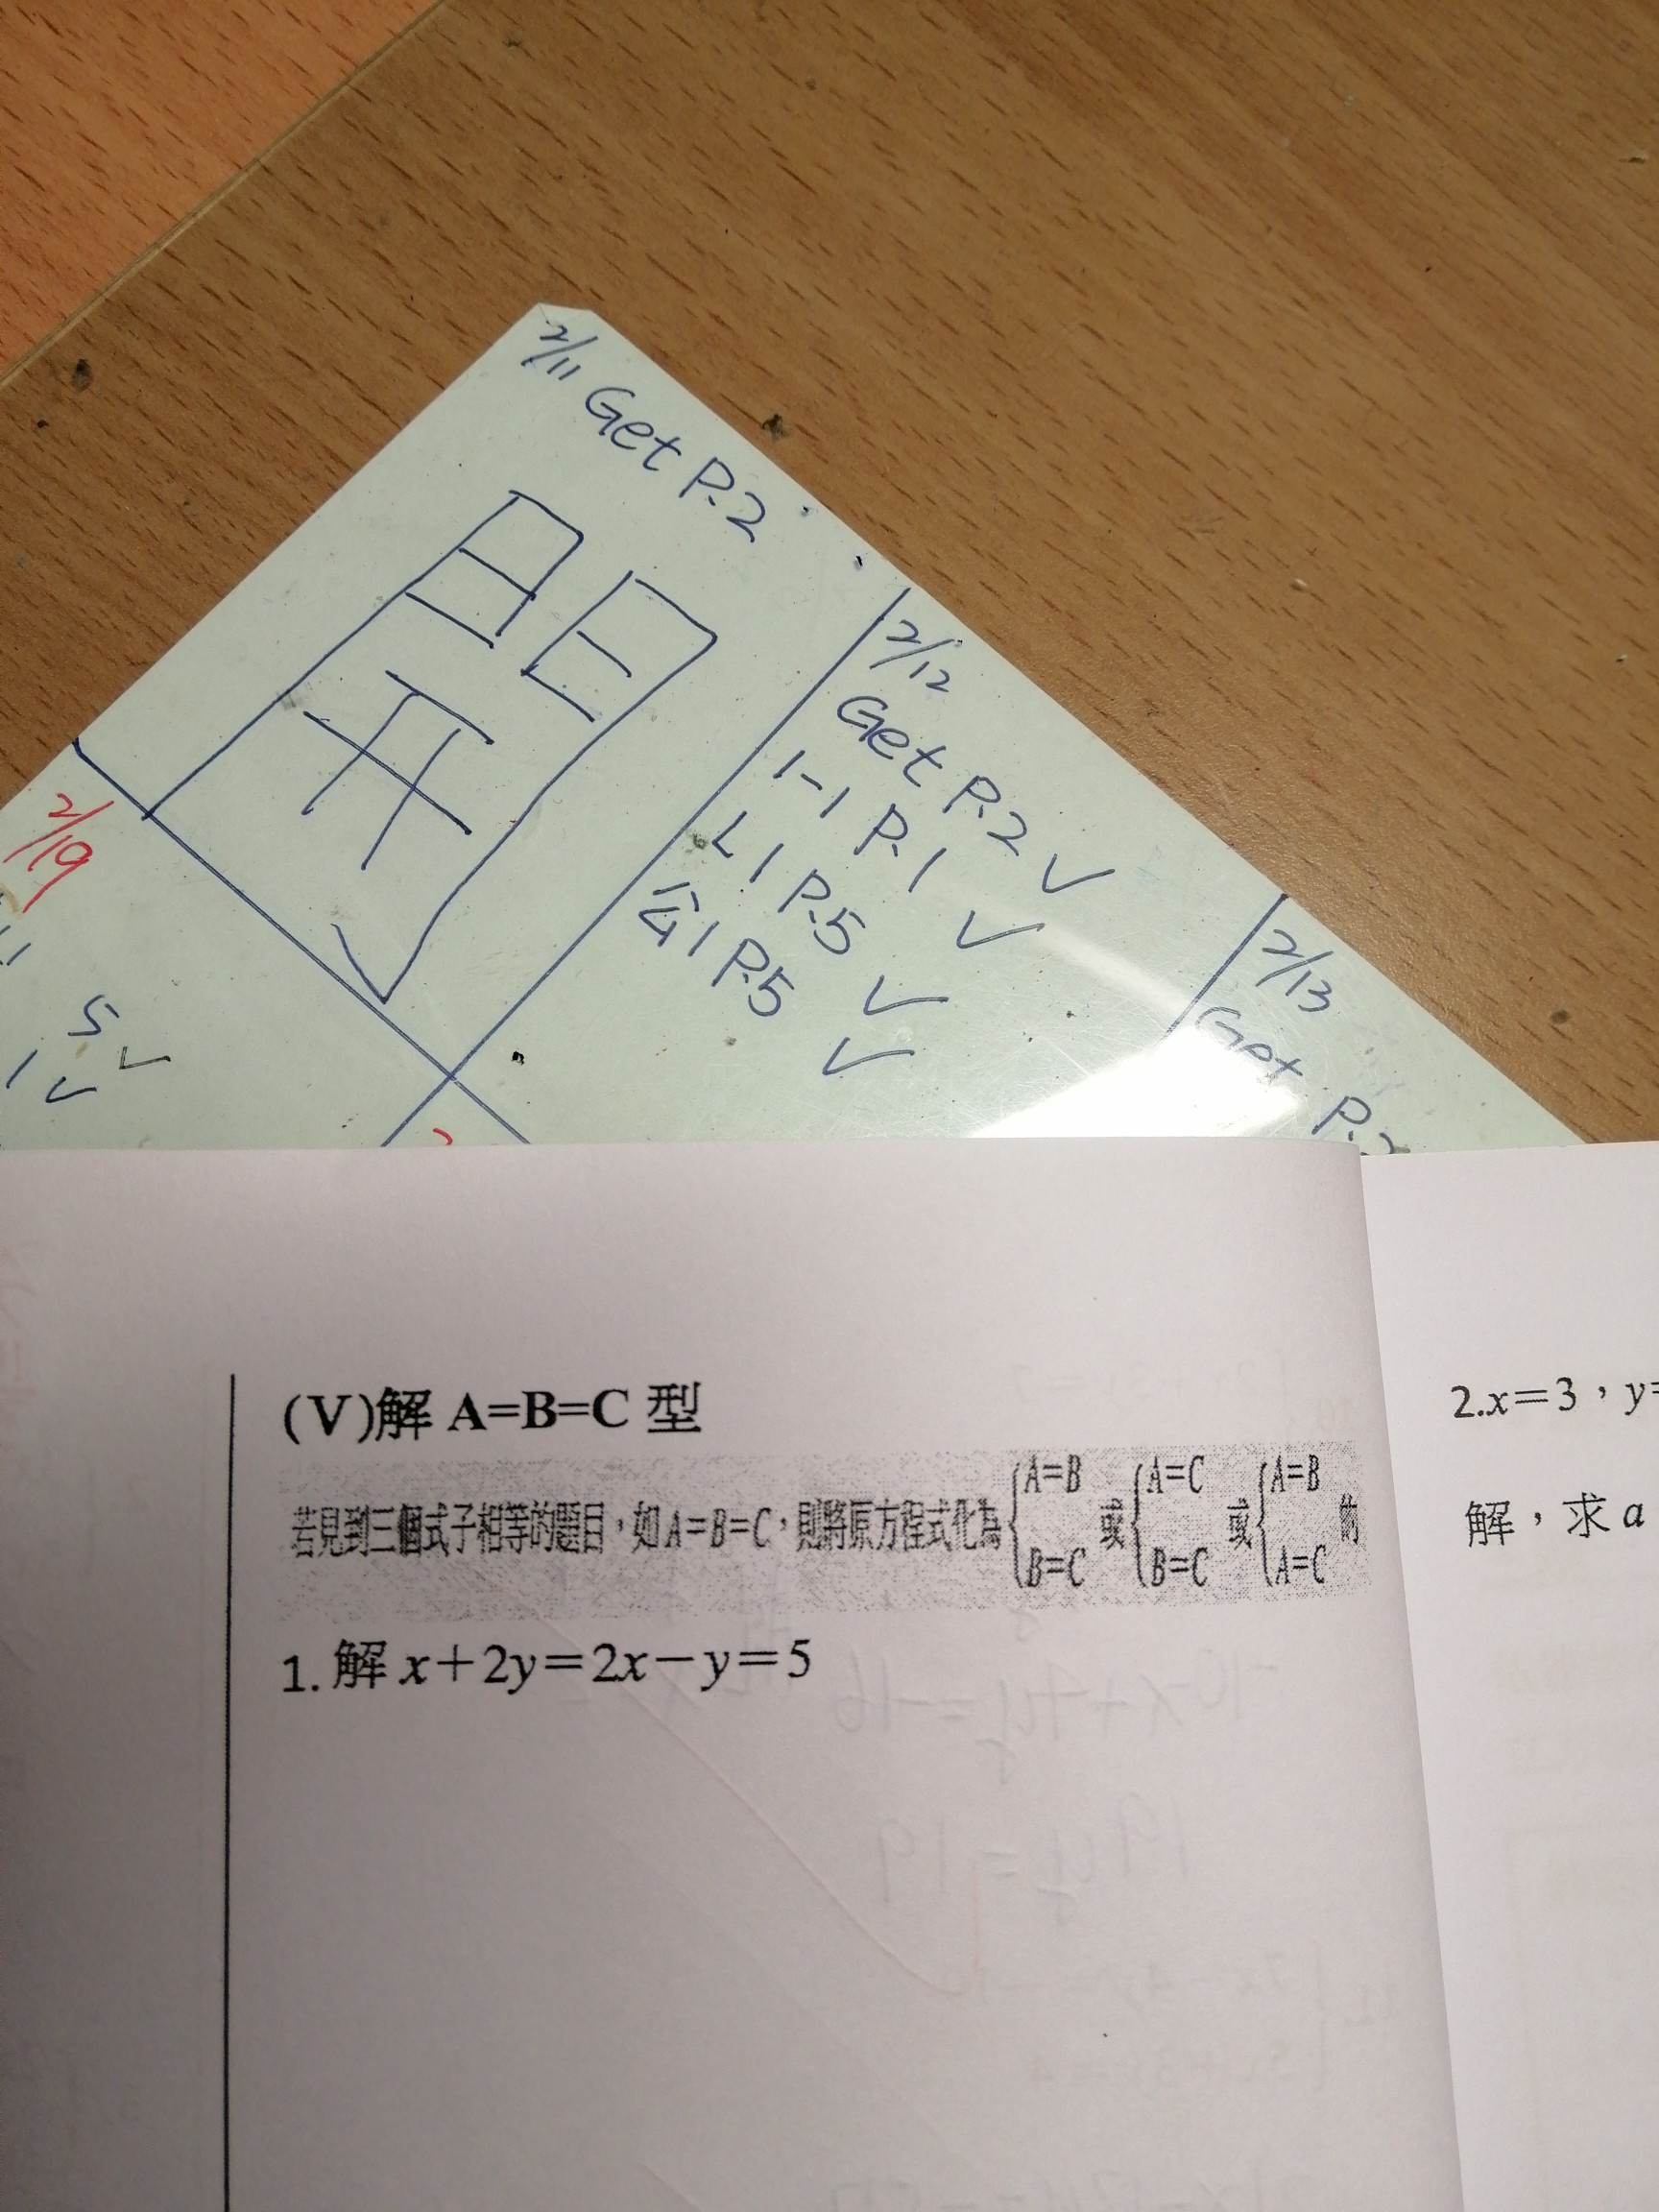 2/11 Get P.2
開
2/12
Get P.2 ✓
1-1 P.1 ✓
L1 P.5 ✓
P.5 ✓
2/13
Get P.2
2/19
5 ✓
1 ✓
(V)解 A=B=C 型
若見到三個式子相等的題目,如 A=B=C,則將原方程式化為 {A=B B=C 或 {A=C B=C 或 {A=B A=C 的
1. 解 x+2y=2x-y=5
2.x=3,y=
解,求 a